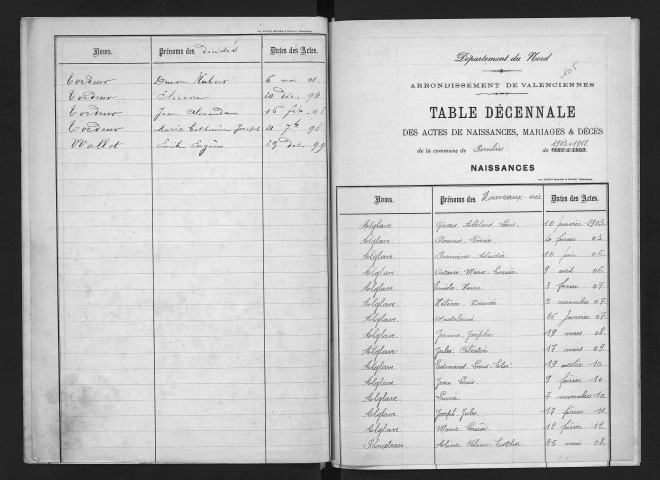 Noms. Prénoms des décédés Dates des Actes.
Cordeur Simon Hubert 6 mai 01.
Cordeur Eléonore 20 déc. 94
Cordeur Jean 16 02
Cordeur Marie Catherine Joseph 20 7bre 95
Wallet Emile Eugène 29 déc. 99
105
Département du Nord
ARRONDISSEMENT DE VALENCIENNES
TABLE DÉCENNALE
DES ACTES DE NAISSANCES, MARIAGES & DÉCÈS
1903 à 1912
de la commune de Rombies de 1893 à 1903.
NAISSANCES
Noms. Prénoms des Nouveaux-nés. Dates des Actes.
Alglave Louis. 10 janvier 1903.
Alglave. 4 février 03.
Alglave. Francine Elodie 10 juin 05.
Alglave Octavie Marie Louise 9 avril 06.
Alglave Emile Henri 3 février 07.
Alglave Hélène Désirée 5 novembre 07.
Alglave Madeleine 25 janvier 07.
Alglave Jeanne Josèphe 19 mars 08.
Alglave Jules Célestin 17 mars 09.
Alglave Edmond Louis Eloi 19 octobre 10
Alglave Jean Louis 9 février 10
Alglave Laura 7 novembre 10
Alglave Joseph Jules. 17 février 11.
Alglave Marie Louise 12 février 12
Aline Céline Esther 25 mai 08.